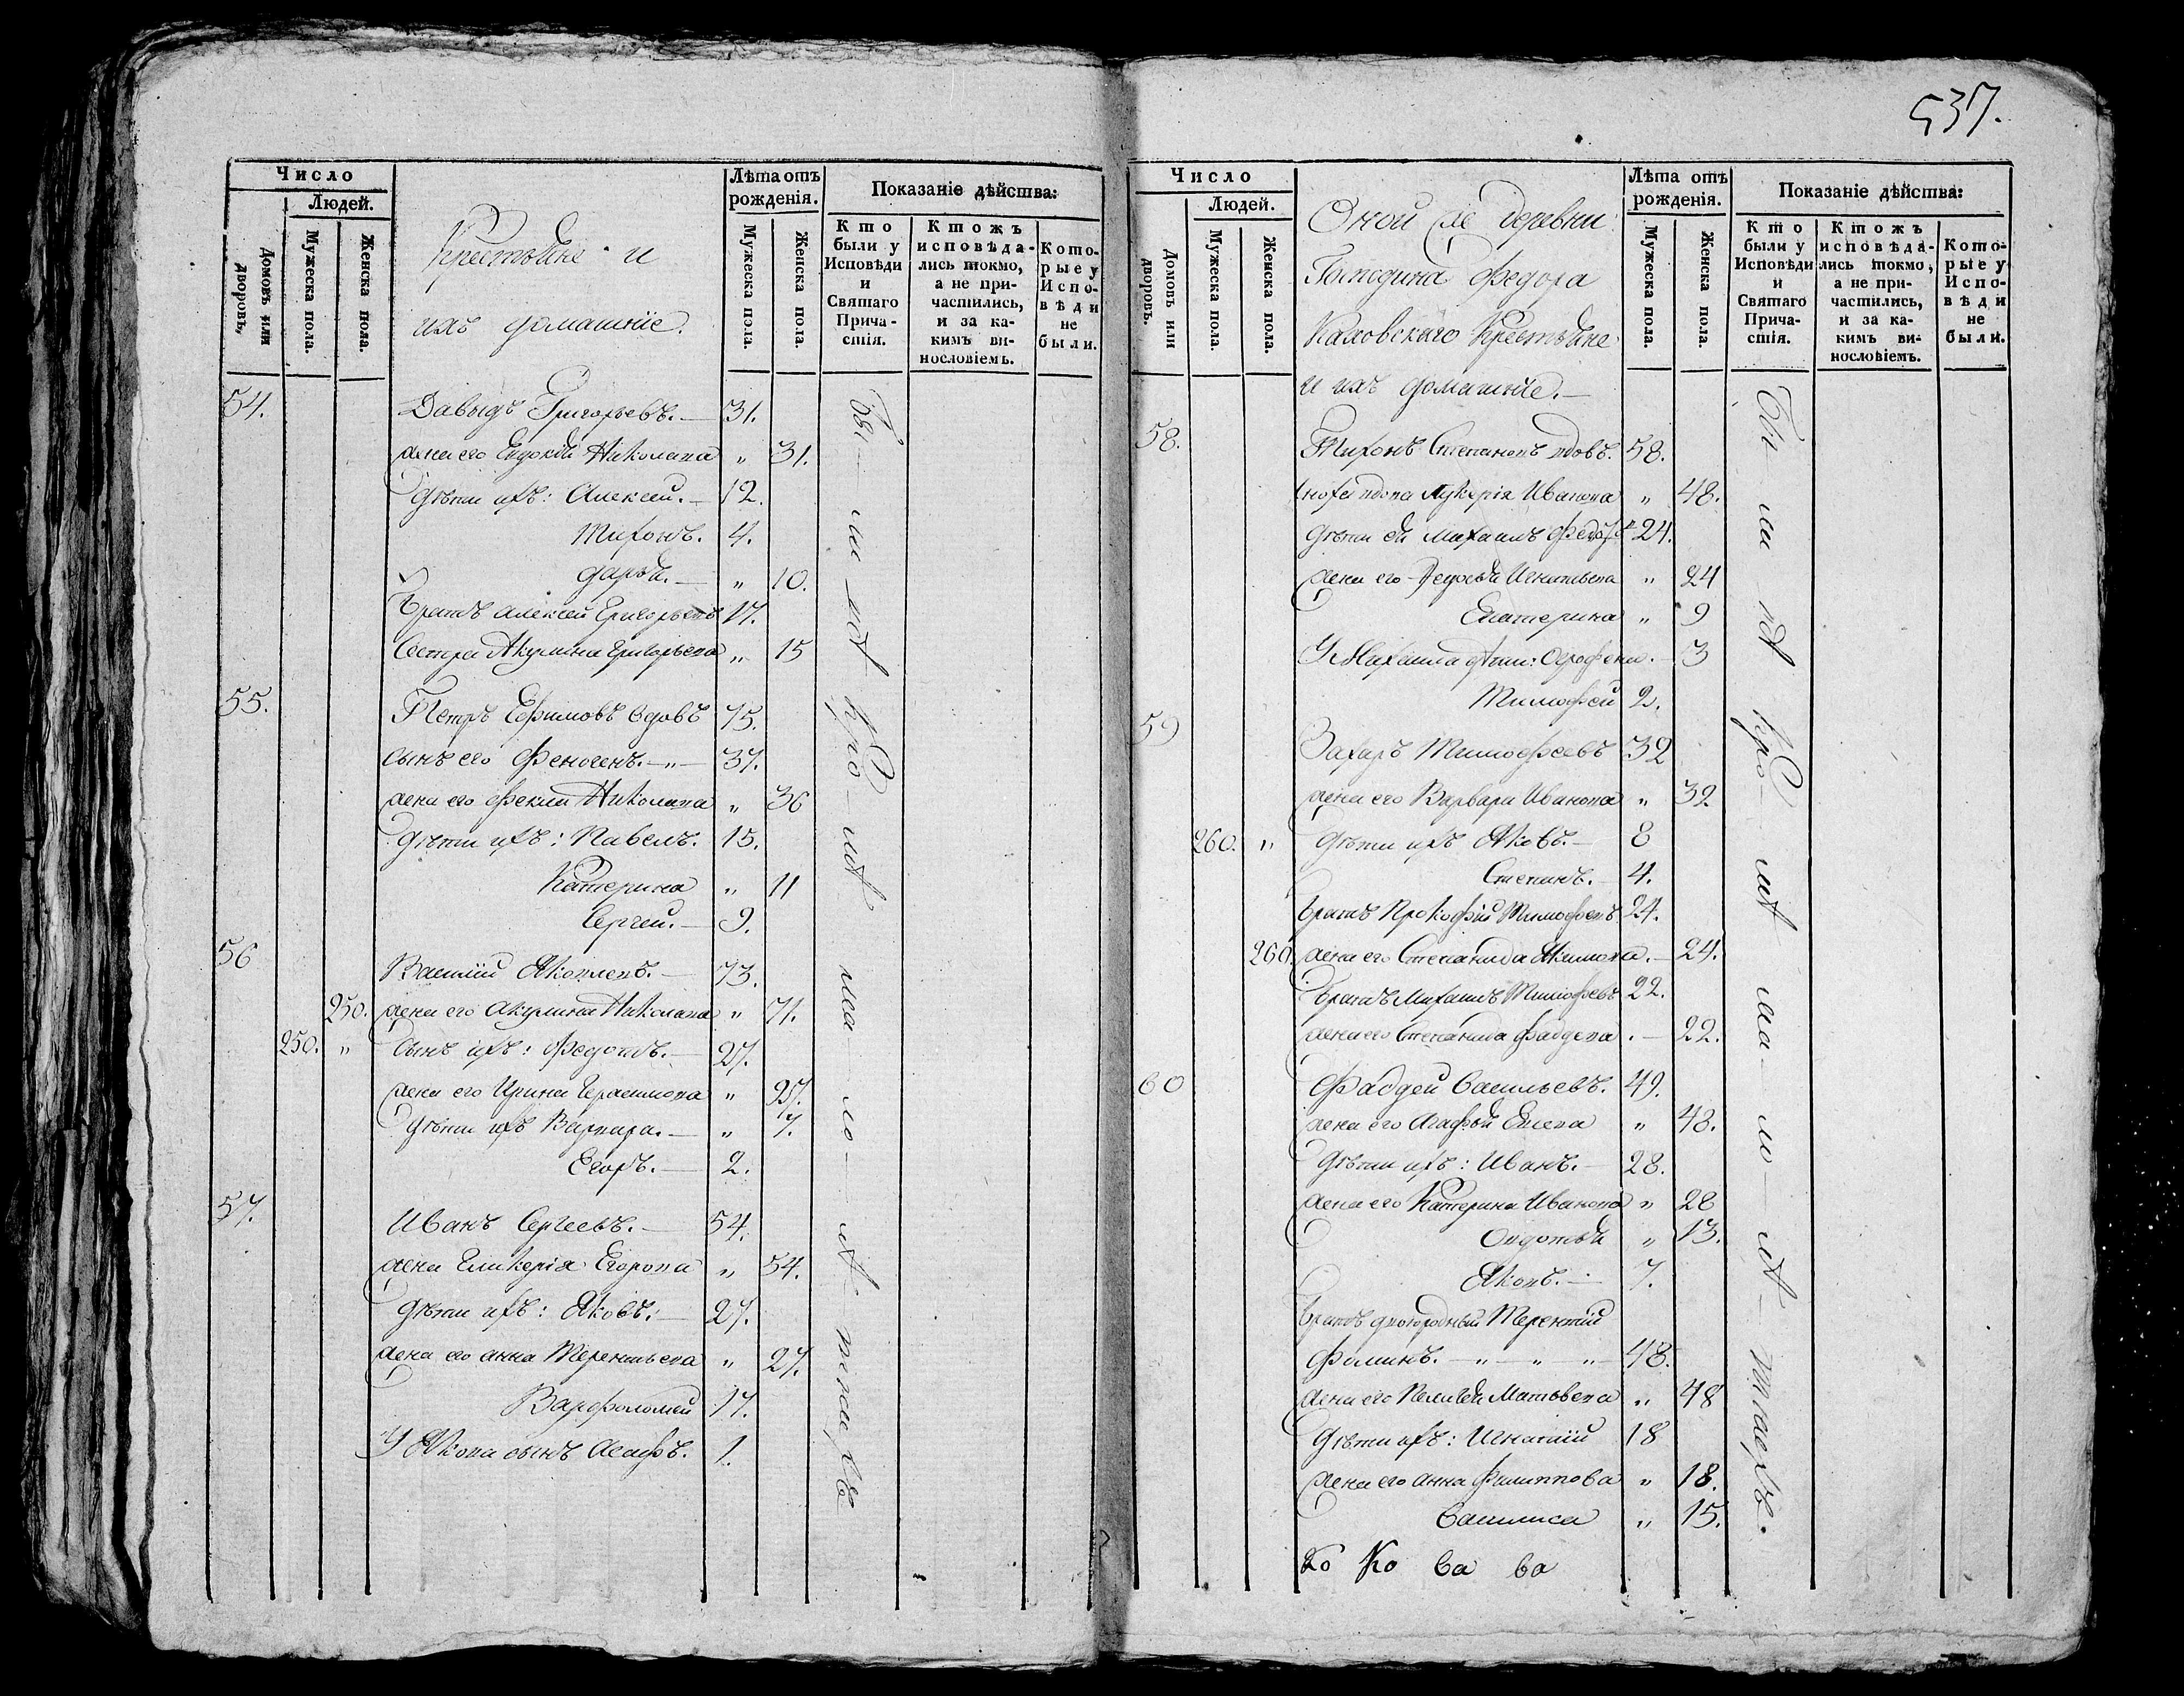 537.
Число
Людей.
Домовъ или дворовъ,
Мужеска пола.
Женска пола.
Крестьяне и
ихъ домашніе.
Лѣта отъ рожденія.
Мужеска пола.
Женска пола.
Показаніе дѣйства:
Кто были у Исповѣди и Святаго Причастія.
Ктожъ исповѣдались токмо, а не причастились, и за какимъ винословіемъ.
Которые у Исповѣди не были.
54. Давыдъ Григорьевъ. 31.
жена его Евдокія Николаева „ 31.
Дѣти ихъ: Алексей. 12.
Тихонъ. 4.
Дарья. „ 10.
Братъ Алексей Григорьевъ 17.
Сестра Акулина Григорьева „ 15
55. Петръ Ефимовъ вдовъ 75.
сынъ его Феногенъ. „ 37.
жена его Фекла Николаева „ 36
Дѣти ихъ: Павелъ. 15.
Катерина „ 11
Сергей. 9.
56 Василій Яковлевъ. 73.
250. жена его Акулина Николаева „ 71.
250. „ Сынъ ихъ: Федотъ. 27.
жена его Ирина Герасимова „ 27.
Дѣти ихъ Варвара. „ 7.
Егоръ. 2.
57. Иванъ Сергеевъ. 54.
жена Гликерія Егорова „ 54.
Дѣти ихъ: Яковъ. 27.
жена его Анна Терентьева „ 27.
Варфоломей 17.
У Якова сынъ Асафъ. 1.
Число
Людей.
Домовъ или дворовъ.
Мужеска пола.
Женска пола.
Оной же деревни
Господина Федора
Каховскаго Крестьяне
и ихъ домашніе.
Лѣта отъ рожденія.
Мужеска пола.
Женска пола.
Показаніе дѣйства:
Кто были у Исповѣди и Святаго Причастія.
Ктожъ исповѣдались токмо, а не причастились, и за какимъ винословіемъ.
Которые у Исповѣди не были.
58. Тихонъ Степановъ вдовъ. 58.
сноха вдова Лукерія Иванова „ 48.
Дѣти ея Михаилъ Федо 24.
жена его Федосья Игнатьева „ 24
Екатерина „ 9
У Михаила дѣти: Огрофена. 3
Тимофей 2.
59 Захаръ Тимофеевъ 32
жена его Варвара Иванова „ 32
260. „ Дѣти ихъ Яковъ. 8
Степанъ. 4.
братъ Прокофій Тимофеевъ 24.
260. жена его Степанида Якимова. 24.
Братъ Михаилъ Тимофеевъ 22.
жена его Степанида Фаддеева. 22.
60 Фаддей Васильевъ. 49.
жена его Агафья Елсева „ 48.
Дѣти ихъ: Иванъ. 28.
жена его Катерина Иванова „ 28
Овдотья „ 13.
Яковъ. 7.
Братъ двоюродный Терентій
Фоминъ. „ „ „ 48.
жена его Пелагея Матвѣева „ 48
Дѣти ихъ: Игнатій 18
жена его Анна Филиппова „ 18.
Василиса „ 15.
Ко Ко ва ва